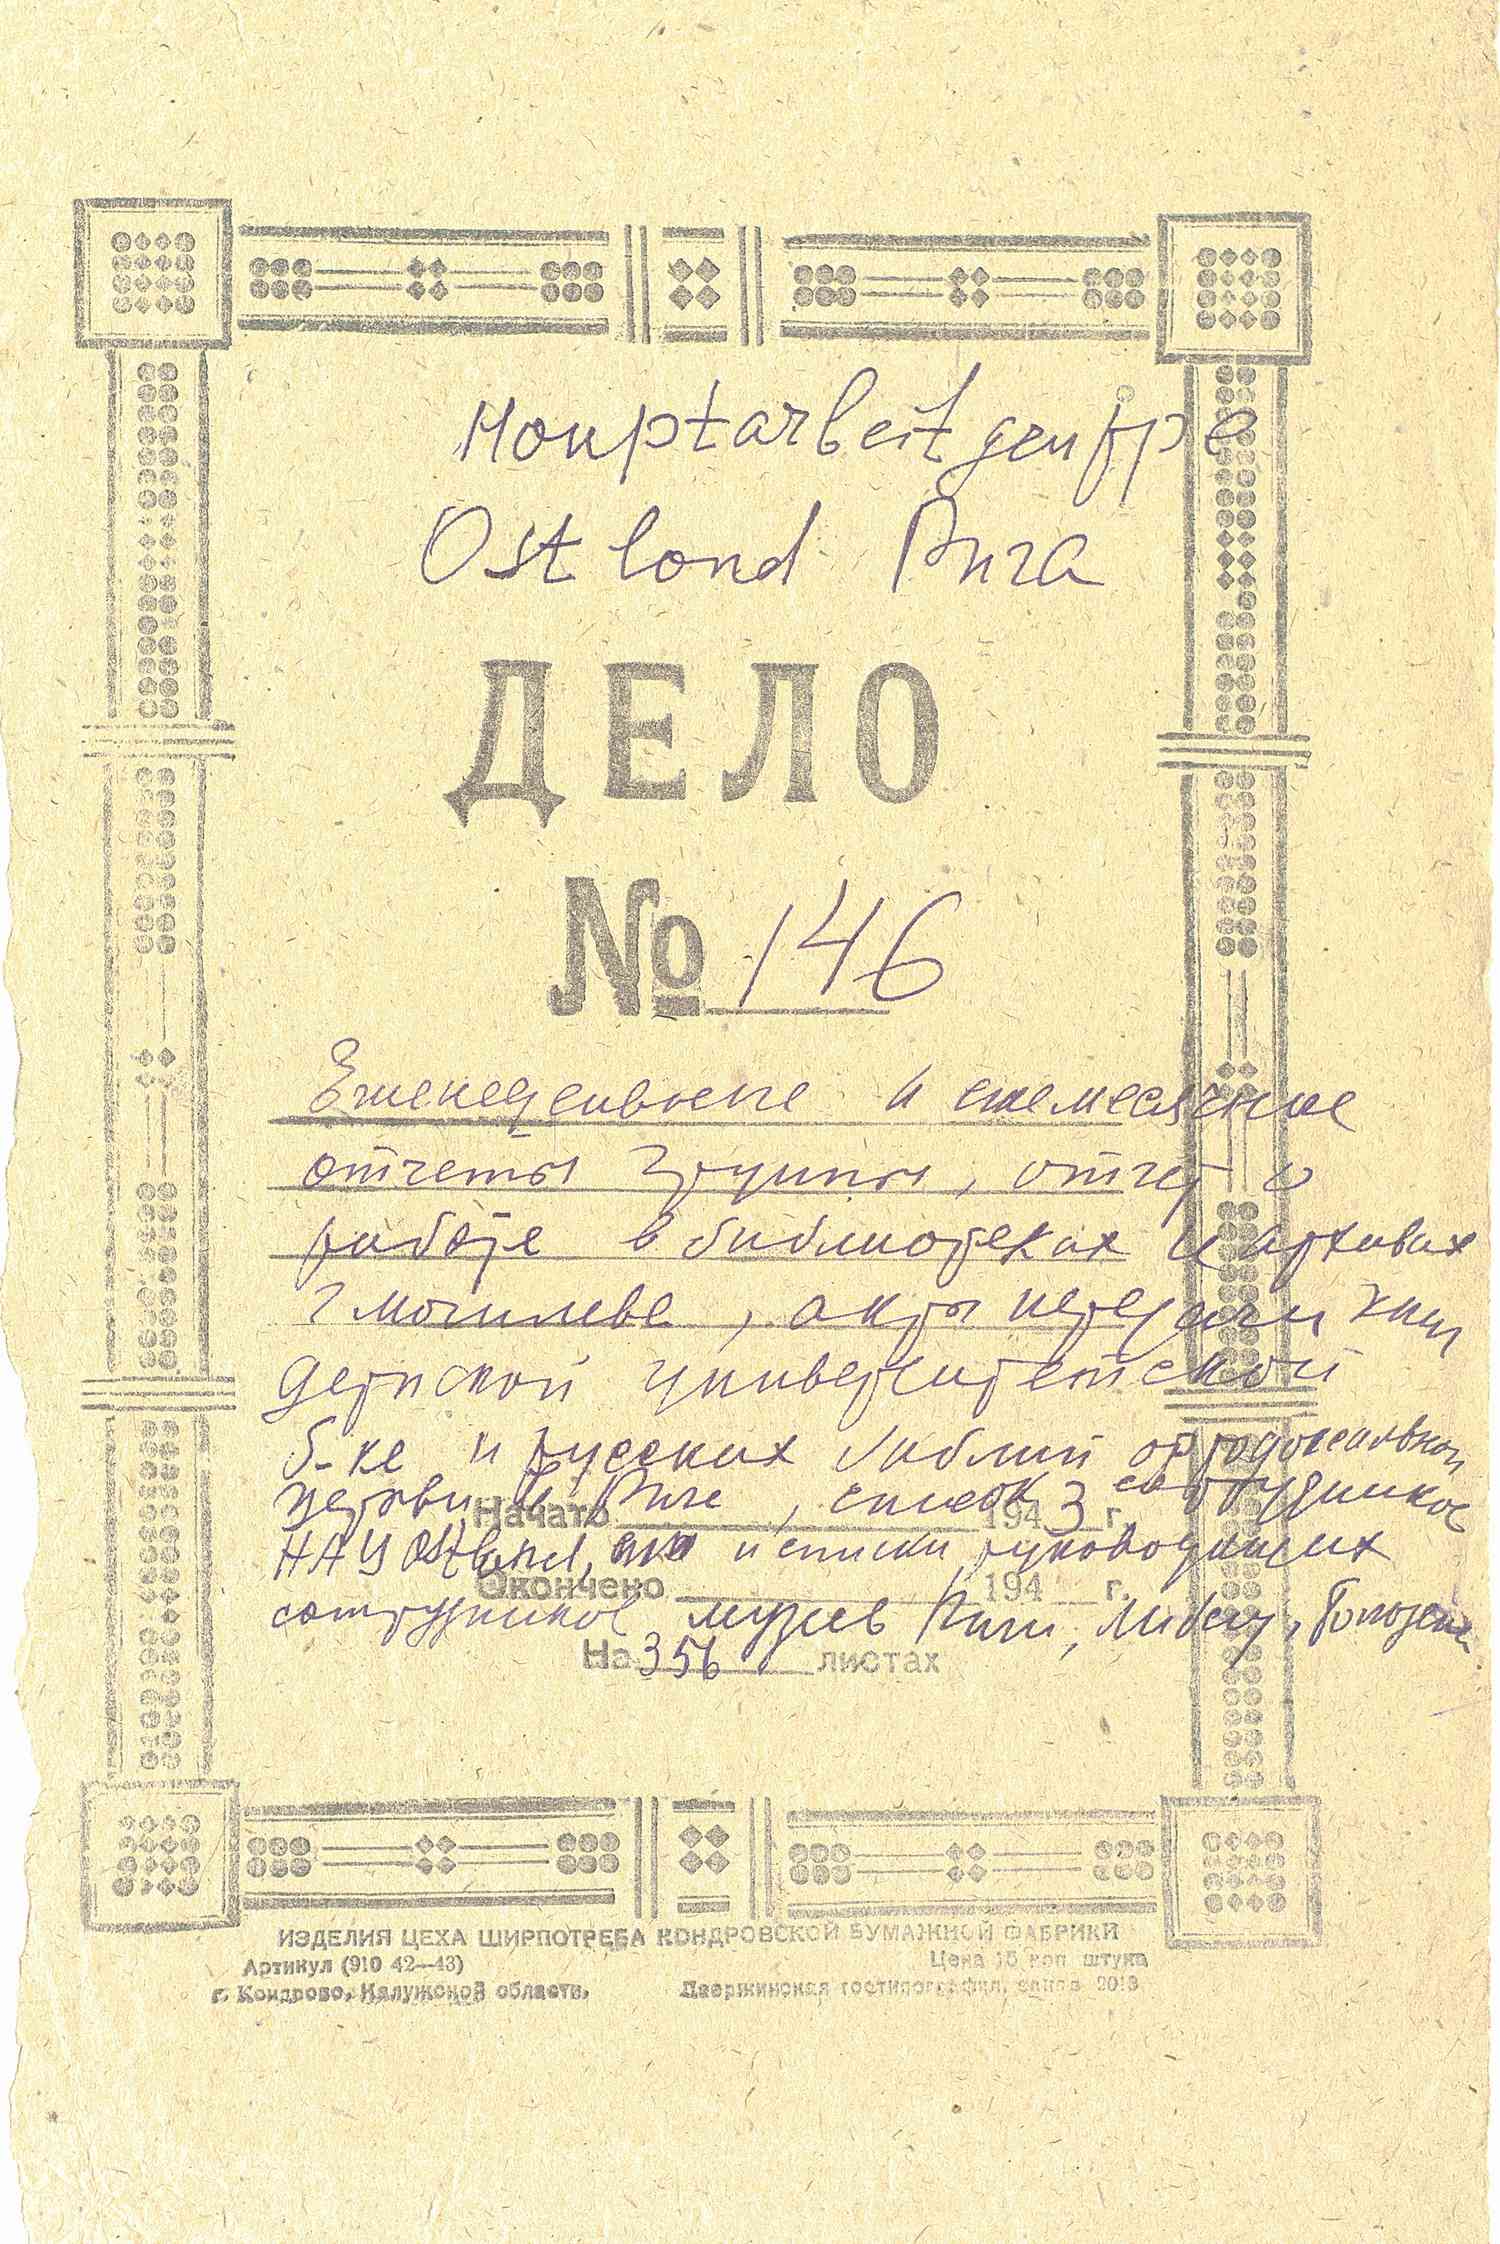 Hauptarbeitgruppe
Ostland Рига
ДЕЛО
№ 146
Еженедельные и ежемесячные
отчеты группы, отчет о
работе в библиотеках и архивах
г Могилева, акты передачи книг
Дерптской университетской
б-ке и русских библий ортодоксальной
церкви в Риге, список сотрудников
Начато 1943 г.
НАУ Ostland, и списки руководящих
Окончено 194 г.
сотрудников музеев Риги, Либау,
На 356 листах
ИЗДЕЛИЯ ЦЕХА ШИРПОТРЕБА КОНДРОВСКОЙ БУМАЖНОЙ ФАБРИКИ
Артикул (910 42—43) Цена 15 коп штука
г. Кондрово, Калужской области. Дзержинская гостипография, заказ 2013